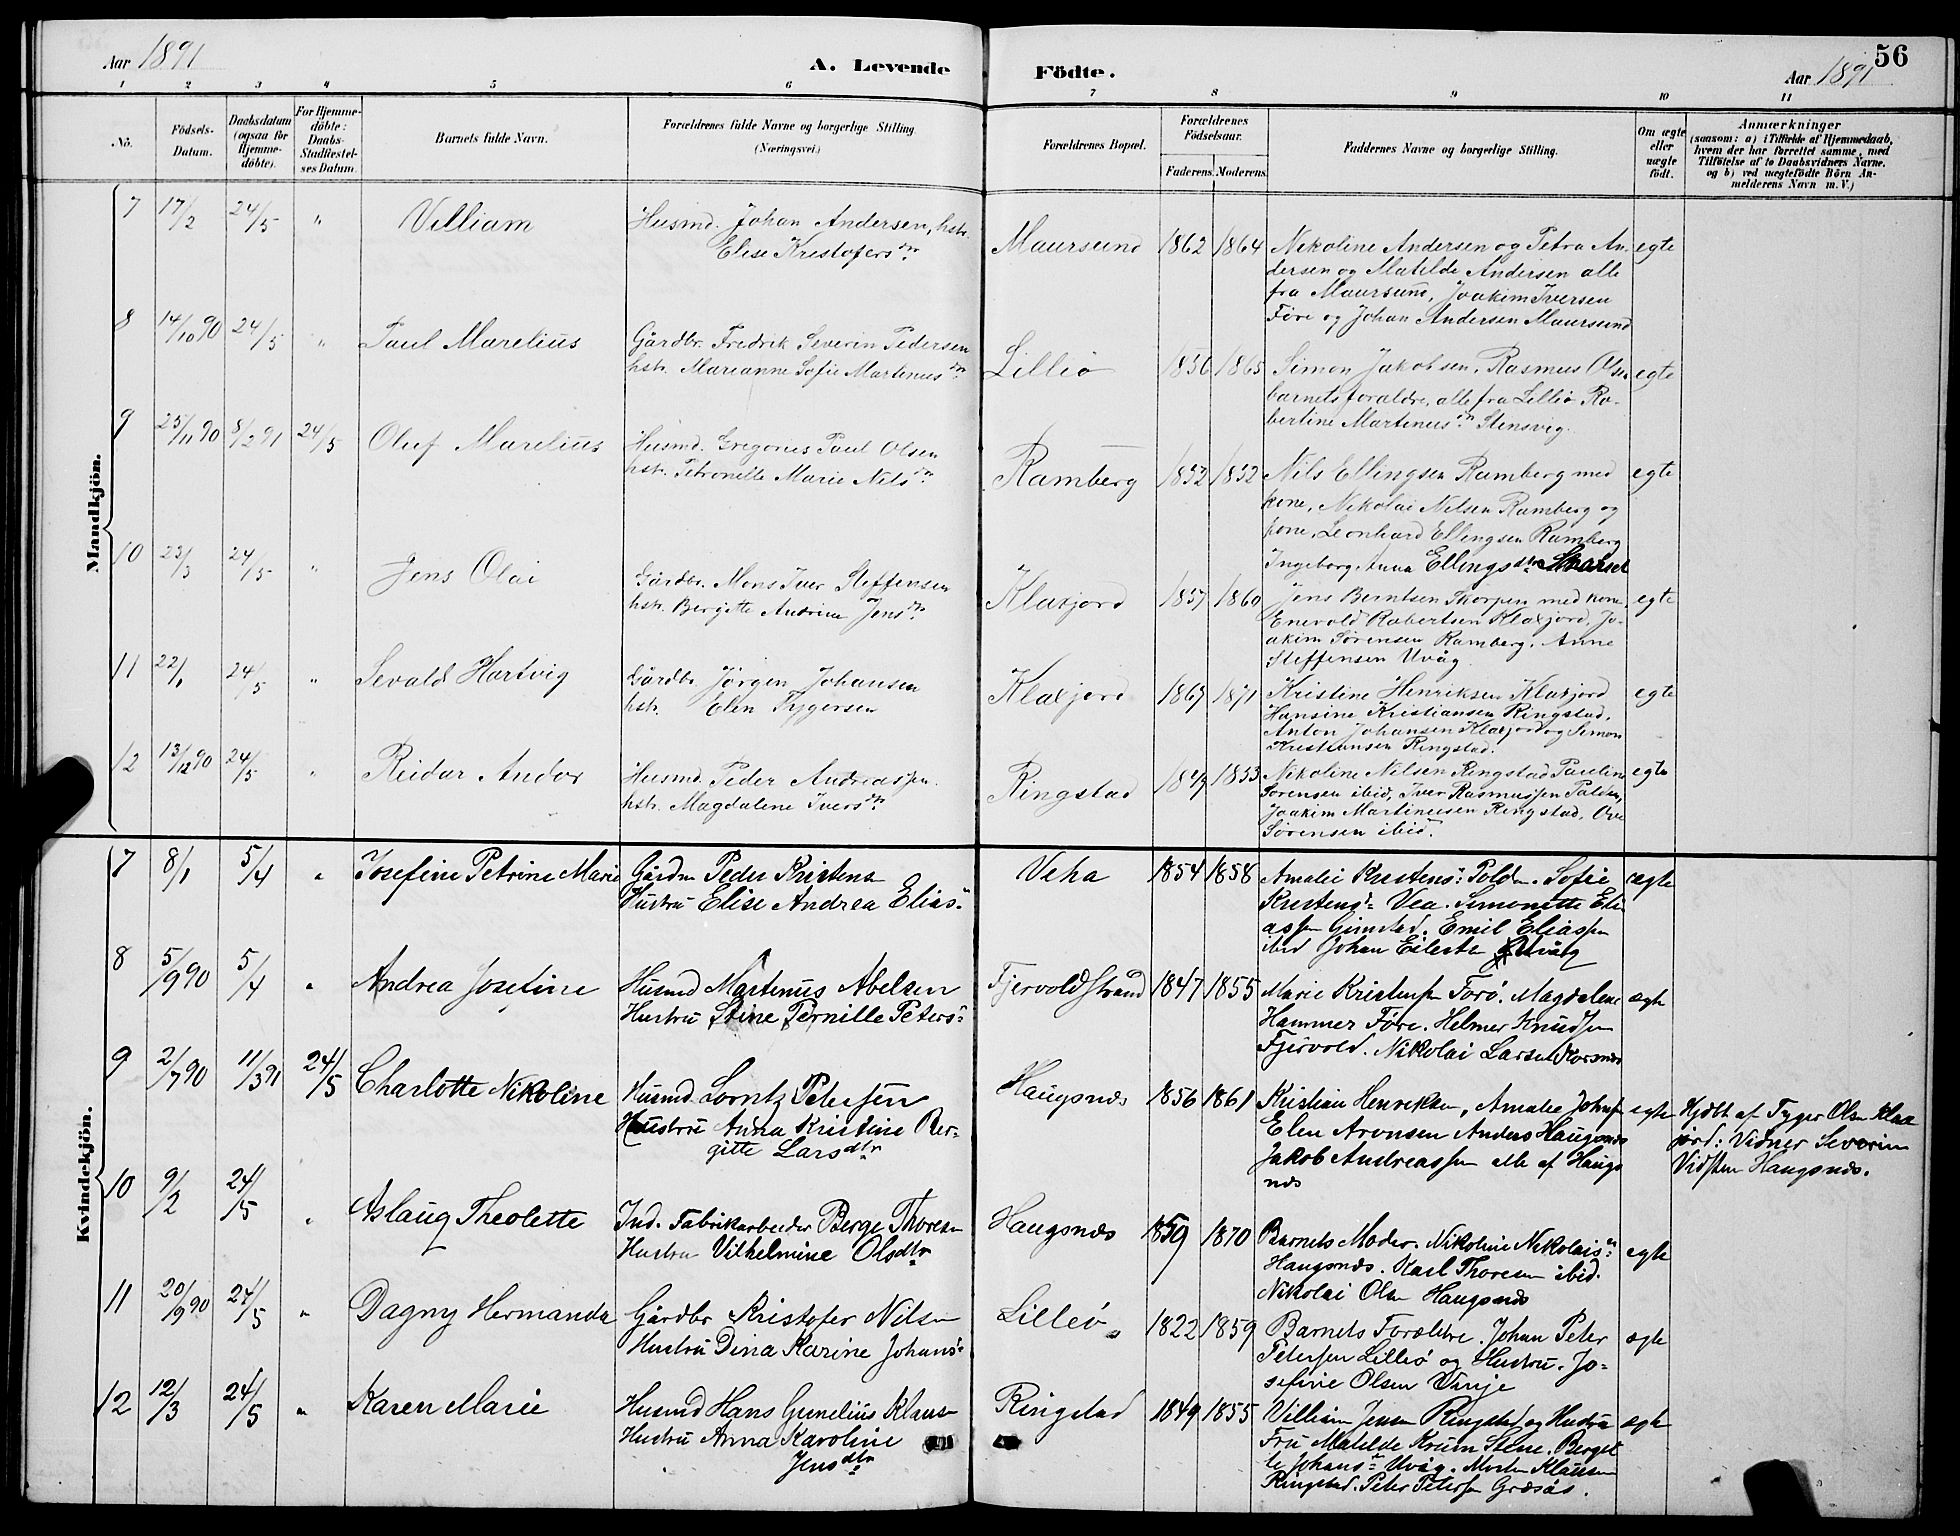 Aar 1891
A. Levende
Födte.
Aar 1891
56
1 2 3 4 5 6 7 8 9 10 11
No.
Födsels-Datum.
Daabsdatum (ogsaa for Hjemmedöbte).
For Hjemmedöbte: Daabs-Stadfæstelses Datum.
Barnets fulde Navn.
Forældrenes fulde Navne og borgerlige Stilling. (Næringsvei.)
Forældrenes Bopæl.
Forældrenes Födselsaar.
Faderens. Moderens.
Faddernes Navne og borgerlige Stilling.
Om ægte eller uægte födt.
Anmærkninger
(saasom: a) i Tilfælde af Hjemmedaab, hvem der har forrettet samme, med Tilföielse af to Daabsvidners Navne. og b) ved uægtefödte Börn Anmelderens Navn m. V.)
Mandkjön.
7 17/2 24/5 " Villiam
Husmd. Johan Andersen, hstr.
Elise Kristofersdtr
Maursund 1862 1864
Nikoline Andersen og Petra An-
dersen og Matilde Andersen alle
fra Maursund, Joakim Iversen
Före og Johan Andersen Maursund
egte
8 14/10 90 24/5 " Paul Marelius
Gårdbr. Fredrik Severin Pedersen
hstr. Marianne Sofie Martinusdtr
Lilliö 1856 1865
Simon Jakobsen, Rasmus Olsen
barnets foraldre, alle fra Lilliö Ro-
bertine Martinusdtr Stensvig.
egte
9 25/11 90 8/2 91 24/5 Oluf Marelius
Husmd. Gregorius Paul Olsen
hstr. Petronille Marie Nilsdtr
Ramberg 1852 1852
Nils Ellingsen Ramberg med
kone, Nikolai Nilsen Ramberg og
kone, Leonhard Ellingsen Ramberg
Ingeborg Anna Ellingsdtr
egte
10 23/3 24/5 " Jens Olai
Gårdbr. Mons Iver Steffensen
hstr. Bergitte Andrine Jensdtr
Klaxjord 1857 1860
Jens Berntsen Skorpen med kone,
Enevold Robertsen Klaxjord, Jo-
akim Sörensen Ramberg, Anne
Steffensen Uvåg
egte
11 22/1 24/5 " Sevald Hartvig
Gårdbr. Jörgen Johansen
hstr. Elen Tygersen
Klaxjord 1869 1871
Kristine Henriksen Klaxjord
Hansine Kristiansen Ringstad,
Anton Johansen Klaxjord og Simon
Kristiansen Ringstad.
egte
12 13/12 90 24/5 " Reidar Andor
Husmd. Peder Andreassen
hstr. Magdalene Iversdtr
Ringstad 1853
Nikoline Nilsen Ringstad Pauline
Sörensen ibid, Iver Rasmussen Polden,
Joakim Martinusen Ringstad, Ove
Sörensen ibid.
egte
Kvindekjön.
7 8/1 5/4 " Josefine Petrine Marie
Gårdm Peder Kristens
Hustru Elise Andrea Elias
Veha 1854 1858
Amalie Kristens: Polden. Sofie
Kristens Vea. Simonette Eli
assen Gimstad. Emil Eliassen
ibid Johan Uvåg
ægte
8 5/9 90 5/4 " Andrea Josefine
Husmd Martenus Abelsen
Hustru Stine Pernille Peters
Fjervoldstrand 1847 1855
Marie Kristensen Forö. Magdalene
Hammer Före. Helmer Knudsen
Fjervold. Nikolai Larsen
ægte
9 2/7 90 11/3 91 24/5 Charlotte Nikoline
Husmd. Lorntz Petersen
Hustru Anna Kristine Ber-
gitte Larsdtr
Haugsnæs 1856 1861
Kristian Henriksen, Amalie Johns
Elen Aronsen Anders Haugsnæs
Jakob Andreassen alle af Haugs
næs
egte
Hjdbt af Tyger Olsen Klax
jord: Vidner Severin
Vidsten Haugsnæs.
10 9/2 24/5 " Aslaug Theolette
Ind. Fabrikarbeider Berge Thoresen
Hustru Vilhelmine Olsdtr
Haugsnæs 1859 1870
Barnets Moder. Nikoline Nikolais
Haugsnæs. Karl Thoresen ibid.
Nikolai Olsen Haugsnæs
egte
11 20/9 90 24/5 " Dagny Hermanda
Gårdbr Kristofer Nilsen
Hustru Dina Karine Johans
Lilleö 1822 1859
Barnets Forældre. Johan Peter
Petersen Lilleö og Hustru. Jo-
sefine Olsen
ægte
12 12/3 24/5 " Karen Marie
Husmd Hans Gunelius Klausen
Hustru Anna Karoline
Jensdtr
Ringstad 1849 1855
Villiam Jensen Ringstad og Hustru
Fru Matilde Krum Stene. Berget
te Johans Uvåg. Morten Klausen
Ringstad. Peter Petersen Græsås.
ægte